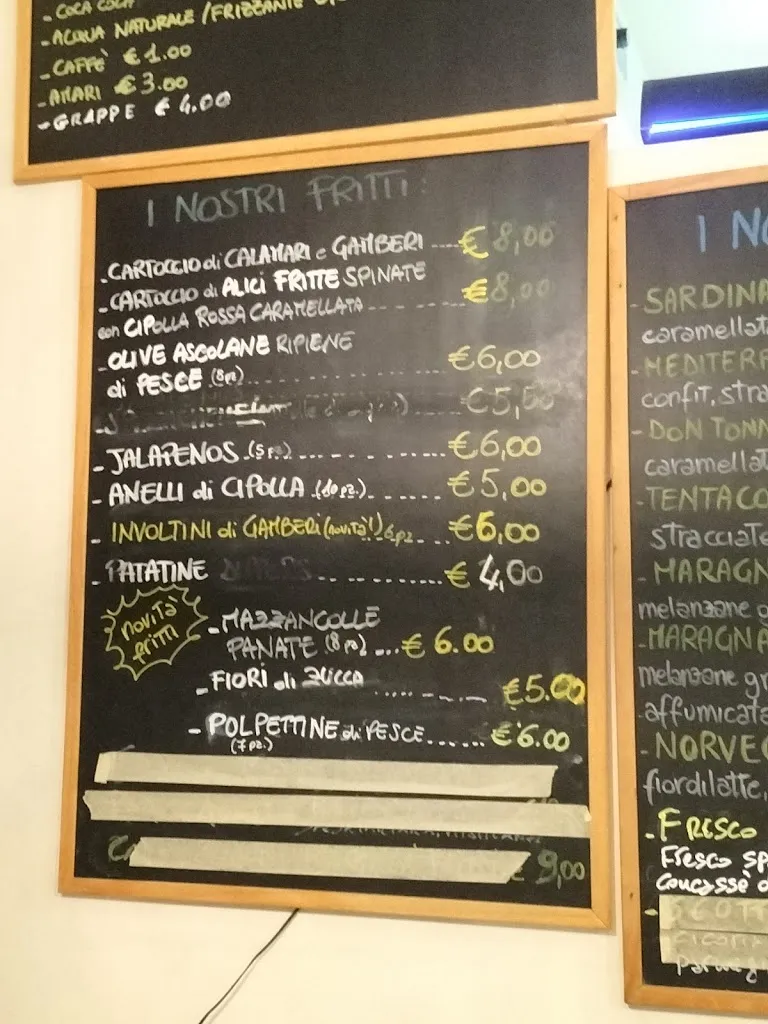 - COCA COLA
- ACQUA NATURALE / FRIZZANTE
- CAFFÈ € 1.00
- AMARI € 3.00
- GRAPPE € 4.00
I NOSTRI FRITTI:
- CARTOCCIO di CALAMARI e GAMBERI .... € 8,00
- CARTOCCIO di ALICI FRITTE SPINATE
con CIPOLLA ROSSA CARAMELLATA ........ € 8,00
- OLIVE ASCOLANE RIPIENE
di PESCE (8pz) ................ € 6,00
€ 5,50
- JALAPENOS (5pz) .......... € 6,00
- ANELLI di CIPOLLA (10 pz.) ........ € 5,00
- INVOLTINI di GAMBERI (novità!) 6pz ... € 6,00
- PATATINE ............ € 4,00
novità
fritti
- MAZZANCOLLE
PANATE (8pz) ... € 6.00
- FIORI di ZUCCA ......... € 5.00
- POLPETTINE di PESCE ...... € 6.00
(7 pz.)
€ 9,00
I NO
- SARDINA
caramellat
- MEDITERR
confit, stra
- DON TONN
caramellat
- TENTACO
stracciate
- MARAGN
melanzane g
- MARAGNA
melanzane gr
affumicata
- NORVEG
fiordilatte,
- FRESCO
Fresco sp
concassè d